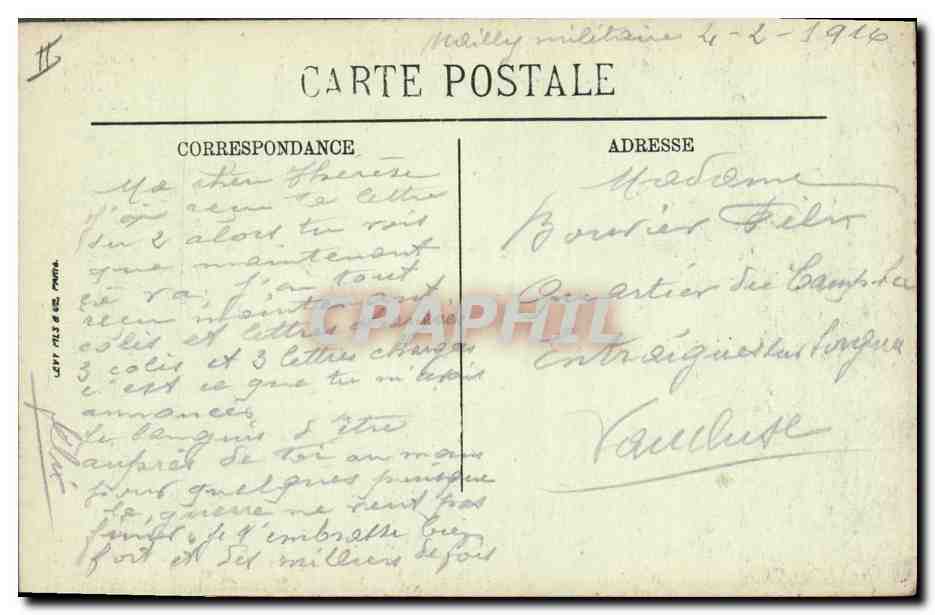 II
Mailly militaire 4-2-1916
CARTE POSTALE
CORRESPONDANCE
ADRESSE
Ma cher Thérèse
j'ai reçu ta lettre
du 2 alors tu vois
que maintenant
ça va, j'ai tout
reçu maintenant
colis et lettres
3 colis et 3 lettres chargés
c'est ce que tu m'avais
annoncés
Je languis d'être
auprès de toi au moins
pour quelques puisque
la guerre ne veut pas
finir. Je t'embrasse bien
fort et des milliers de fois
Félix
Madame
Bouvier Félix
Quartier du Camp
Entraigues sur Sorgue
Vaucluse
LEVY FILS & CIE PARIS.
CPAPHIL